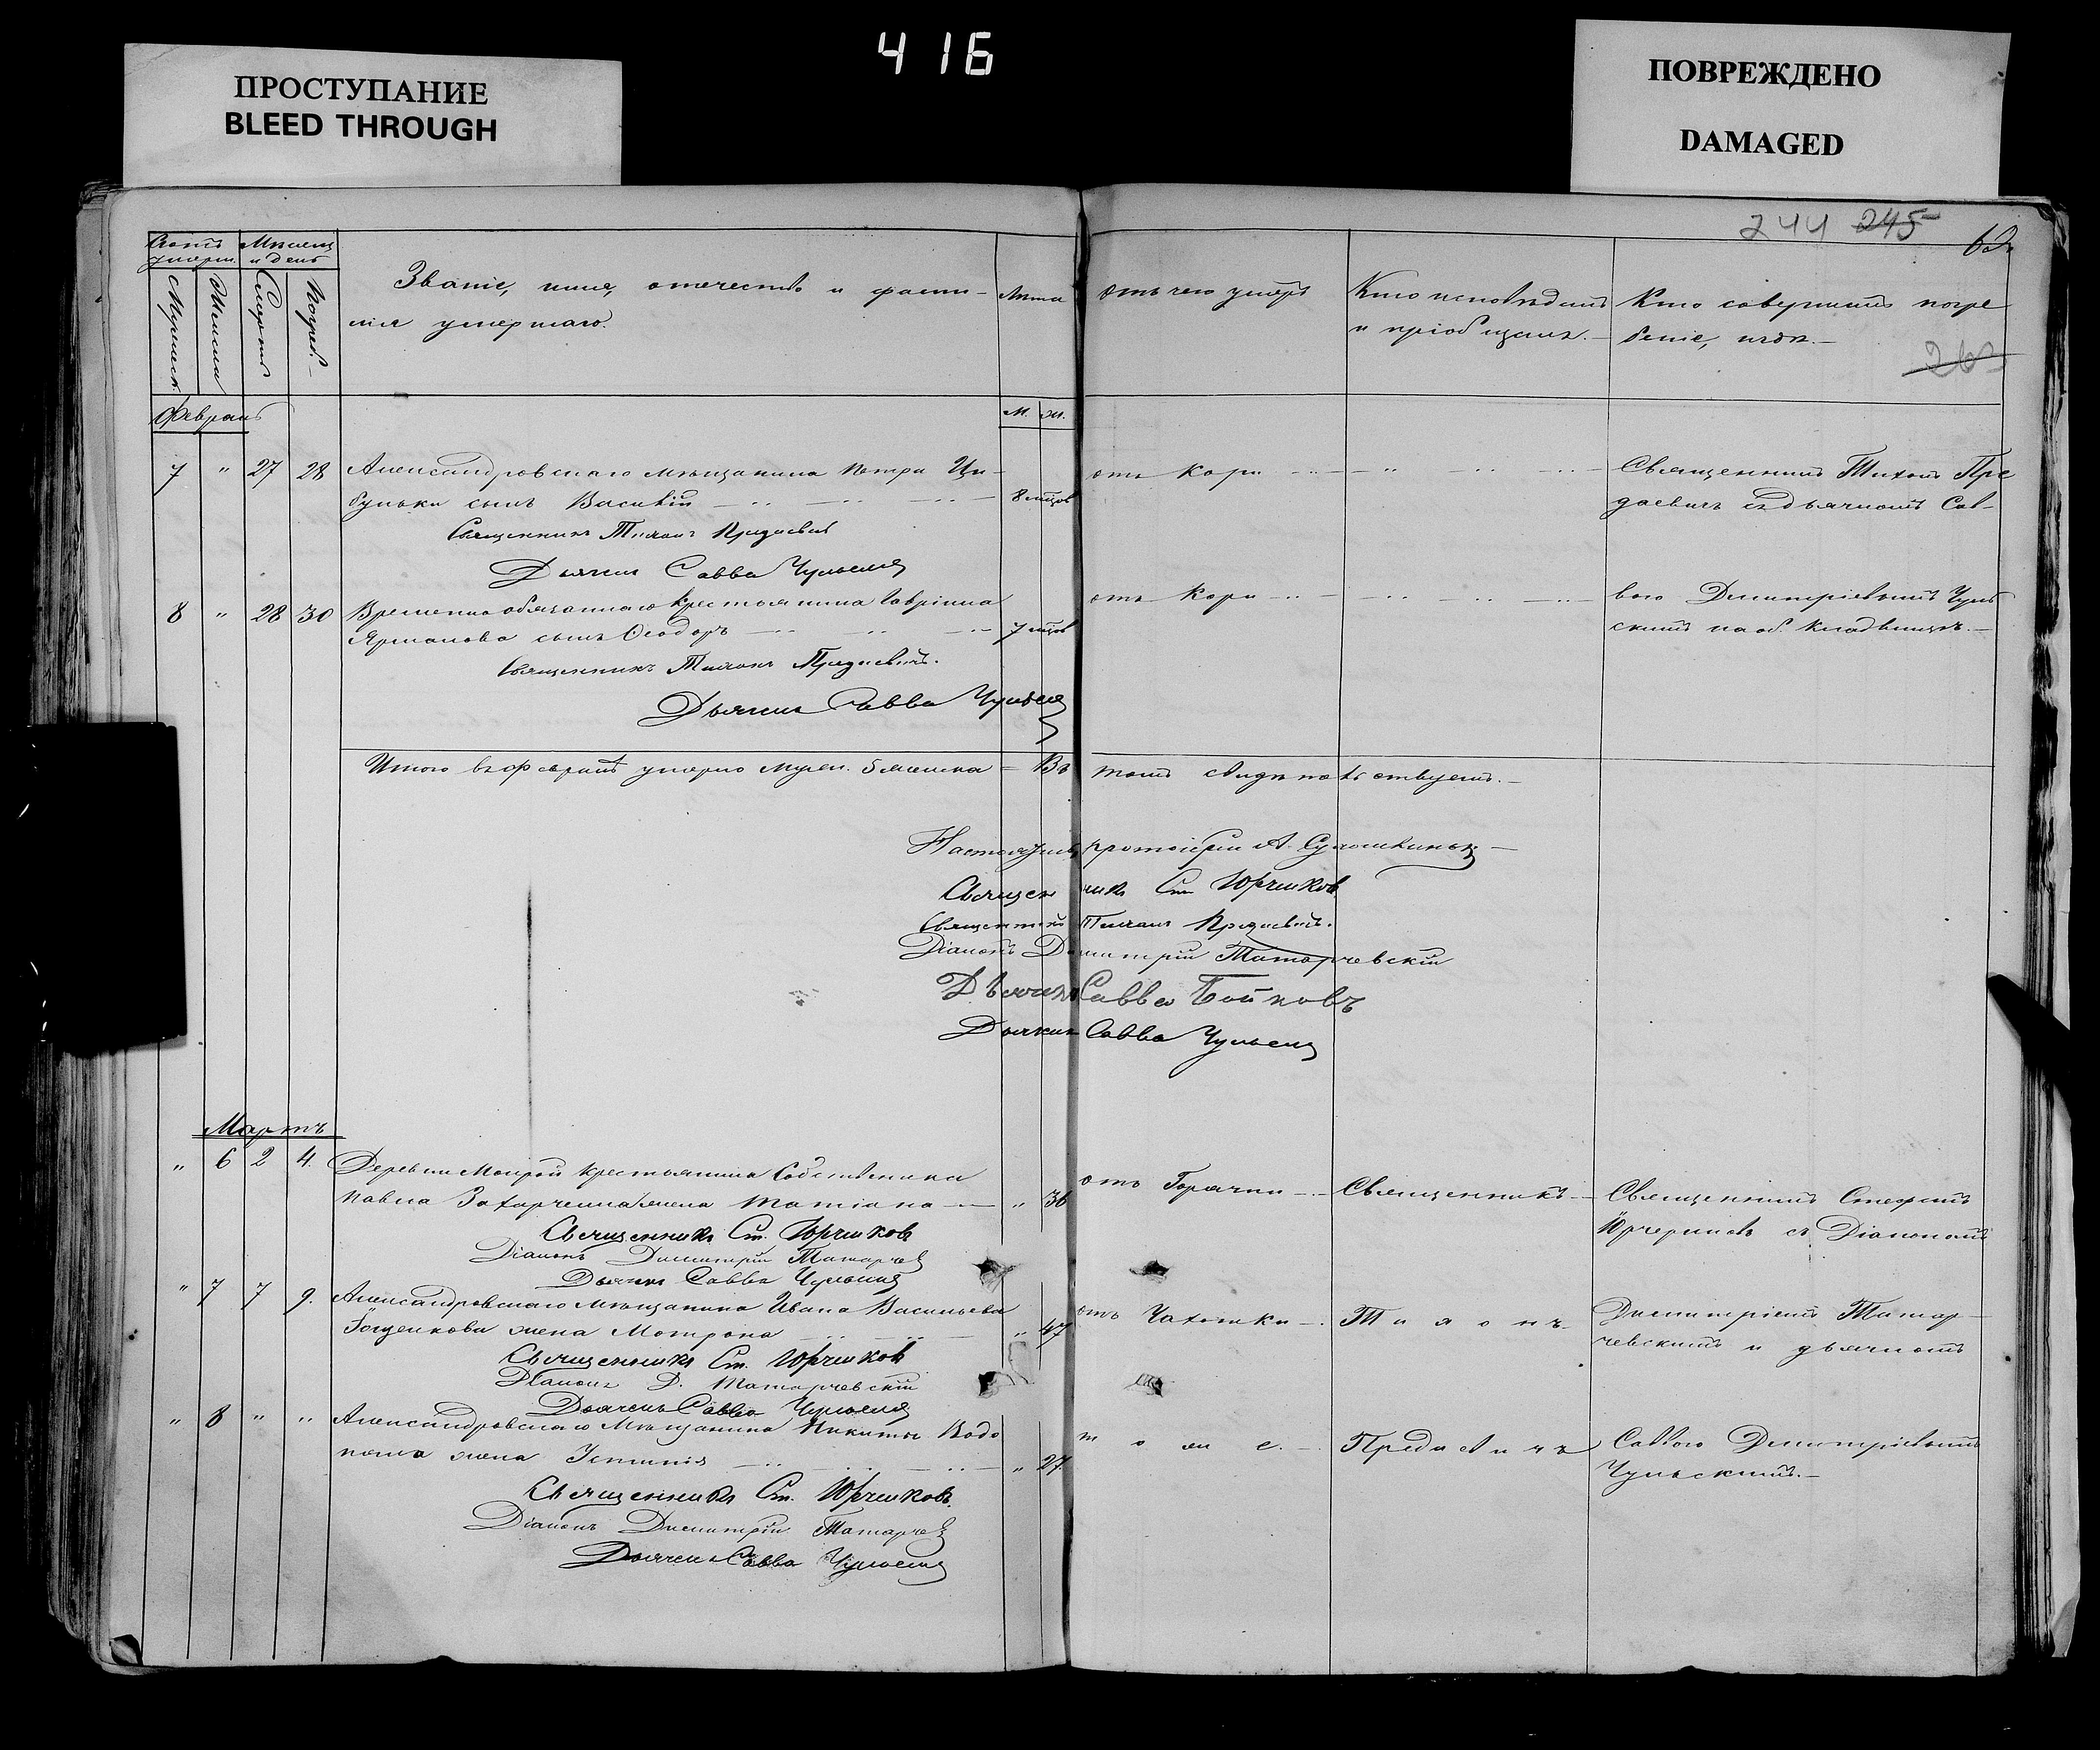 416
ПРОСТУПАНИЕ
BLEED THROUGH
ПОВРЕЖДЕНО
DAMAGED
244 245
Счетъ умерш.
Мѣсяцъ и день
Мужеск.
Женска
Смерти
Погреб.
Званіе, имя, отечество и фами-
лія умершаго.
Лѣта
отъ чего умеръ
Кто исповѣдалъ
и пріобщалъ.
Кто совершалъ погре
беніе, и гдѣ.
Февраль
М. Ж.
7 " 27 28 Александровскаго мѣщанина Петра Ци-
булька сынъ Василій 8 мѣсяц
отъ Кори
Священникъ Тихонъ Пре
даевичъ съ дьячкомъ Сав-
Священникъ Тихонъ Предаевичъ
Дьячекъ Савва Чульскій
8 " 28 30 Временно обязаннаго крестьянина Гавріила
Ярманова сынъ Ѳеодоръ 7 мѣсяц
отъ Кори
вою Димитріевымъ Чуль
скимъ на об. кладбищѣ.
Священникъ Тихонъ Предаевичъ.
Дьячекъ Савва Чульскій
Итого въ февралѣ умерло мужес. женска Въ томъ свидѣтельствуемъ.
Настоятель протоіерей А.
Священникъ Ст. Юрчиков
Священникъ Тихонъ Предаевичъ.
Діаконъ Димитрій Татарчевскій
Дьячекъ Савва Бойковъ
Дьячекъ Савва Чульскій
Мартъ
" 6 2 4. Деревни Мокрой крестьянина Собственика
Павла Захарченка жена Татіана " 36
отъ Горячки
Священникъ
Священникъ Стефанъ
съ Діакономъ
Священникъ Ст. Юрчиков
Діаконъ Димитрій Татарчев
Дьячекъ Савва Чульскій
" 7 7 9. Александровскаго мѣщанина Ивана Васильева
жена Матрона " 47
отъ Чахотки
Тихонъ
Димитріемъ Татар-
чевскимъ и дьячкомъ
Священникъ Ст. Юрчиков
Діаконъ Д. Татарчевскій
Дьячекъ Савва Чульскій
" 8 " " Александровскаго Мѣщанина Никиты Водо
жена Устинія " 27
тоже.
Предаевичъ
Саввою Димитріевымъ
Чульскимъ.
Священникъ Ст. Юрчиковъ.
Діаконъ Димитрій Татарчев
Дьячекъ Савва Чульскій